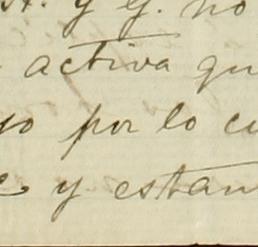 y G. no
activa qu
so por lo cu
y estam